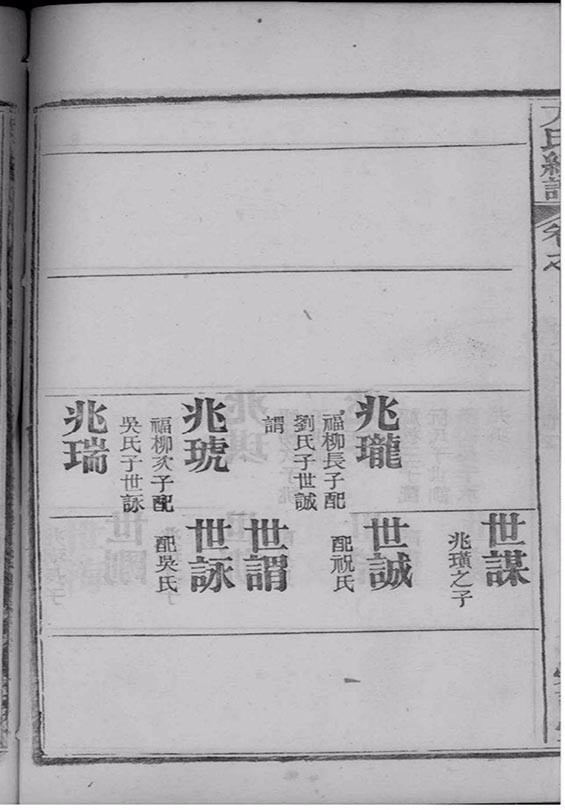 氏統譜
卷之
兆瓏
福柳長子配
劉氏子世誠
謂
兆琥
福柳次子配
吳氏子世詠
兆瑞
世謀
兆璜之子
世誠
配祝氏
世謂
世詠
配吳氏